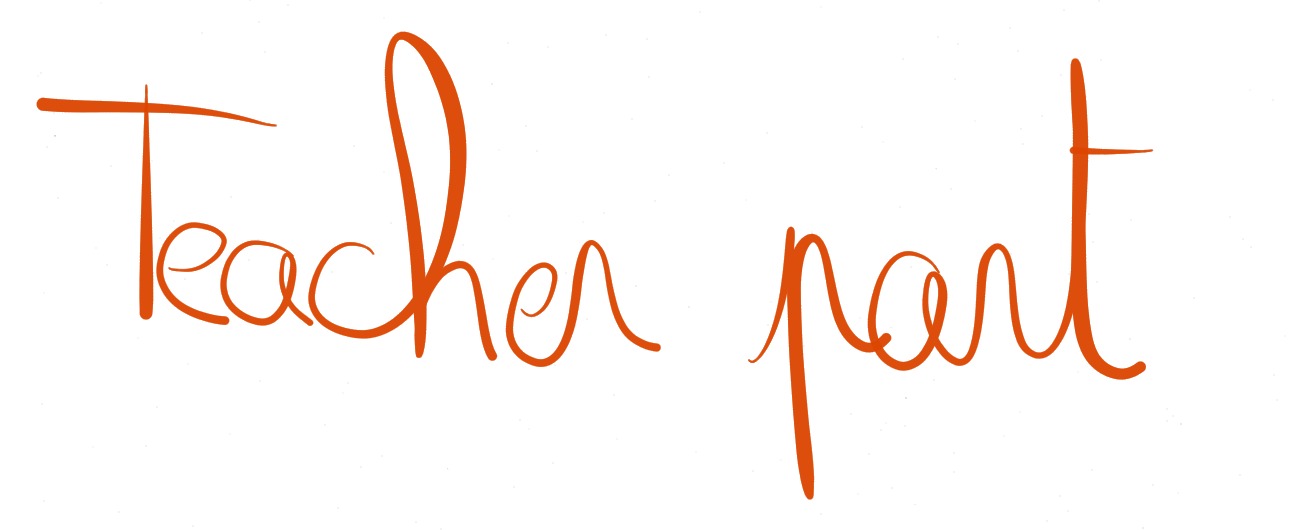 Teacher part